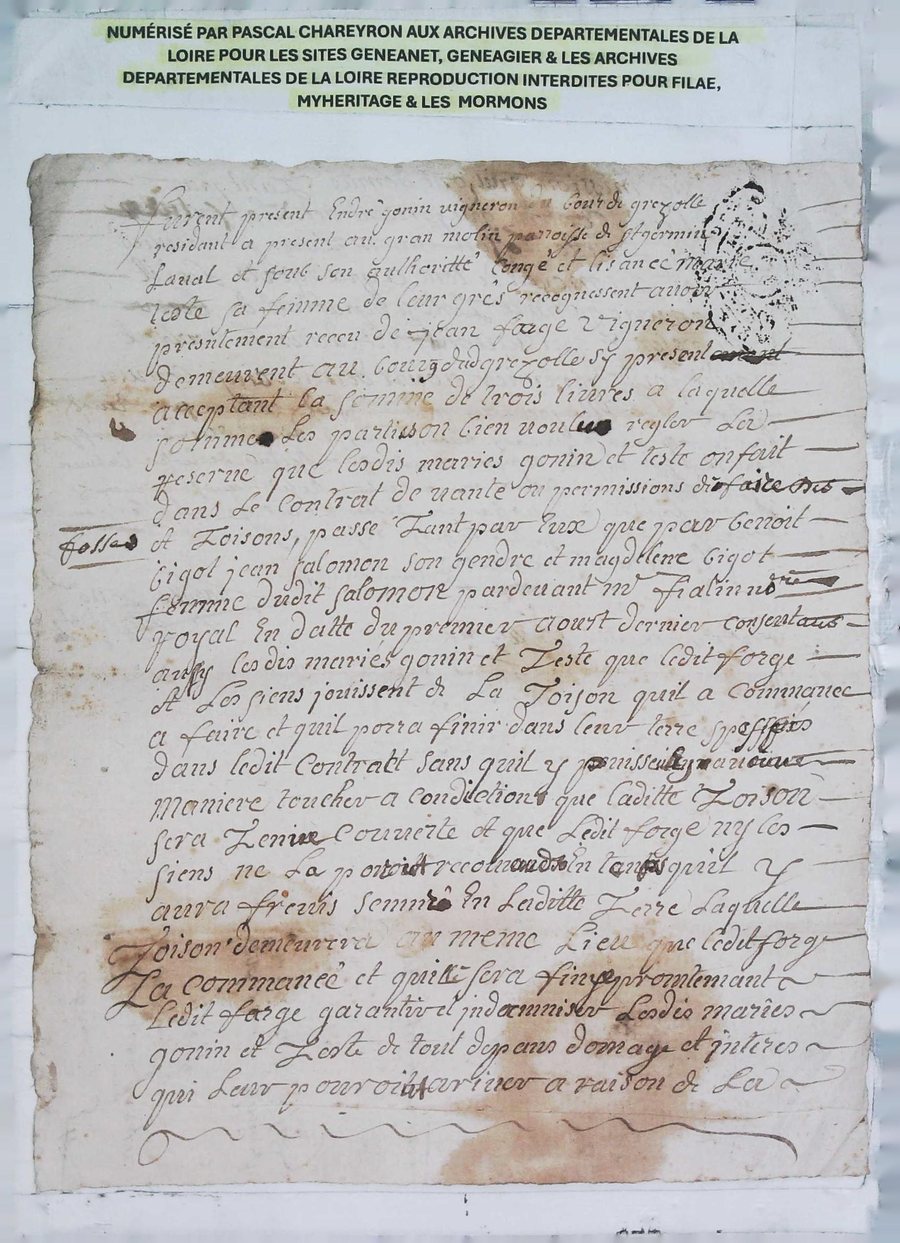 NUMÉRISÉ PAR PASCAL CHAREYRON AUX ARCHIVES DEPARTEMENTALES DE LA
LOIRE POUR LES SITES GENEANET, GENEAGIER & LES ARCHIVES
DEPARTEMENTALES DE LA LOIRE REPRODUCTION INTERDITES POUR FILAE,
MYHERITAGE & LES MORMONS
furent present Endré gonin vigneron du bour de grezolle
residant a present au gran molin paroisse de st germin
Laval et soub son aulhoritté congé et lisance marie
teste sa femme de leur grés recognessent avoir
presentement receu de jean farge vigneron
demeurent au bourg dud grezolle sy present
acceptant la somme de trois livres a laquelle
somme Les partis son bien voulus regler La
reserve que lesdis maries gonin et teste on fait
dans Le contrat de vante ou permissions de faire des
fosses
et Toisons, passé Tant par Eux que par benoit
bigot jean salomon son gendre et magdelene bigot
femme dudit salomon pardevant mr fialin nore
royal En datte du premier aoust dernier consentans
aussy lesdis maries gonin et Teste que ledit forge
et Les siens jouissent de La Toison quil a commancé
a faire et quil porra finir dans leur terre
dans ledit Contratt sans quil y puisse
maniere toucher a condiction que laditte Toison
sera Tenue couverte et que Ledit forge ny les
siens ne La En tamps quil y
aura frevis semmé En Laditte Terre Laquelle
Toison demeurera au meme Lieu que ledit forge
La commancé et quille sera finye promtemant
Ledit farge garantir et indemniser Lesdis maries
gonin et Teste de tout depans domage et interes
qui Leur pourroit ariver a raison de La